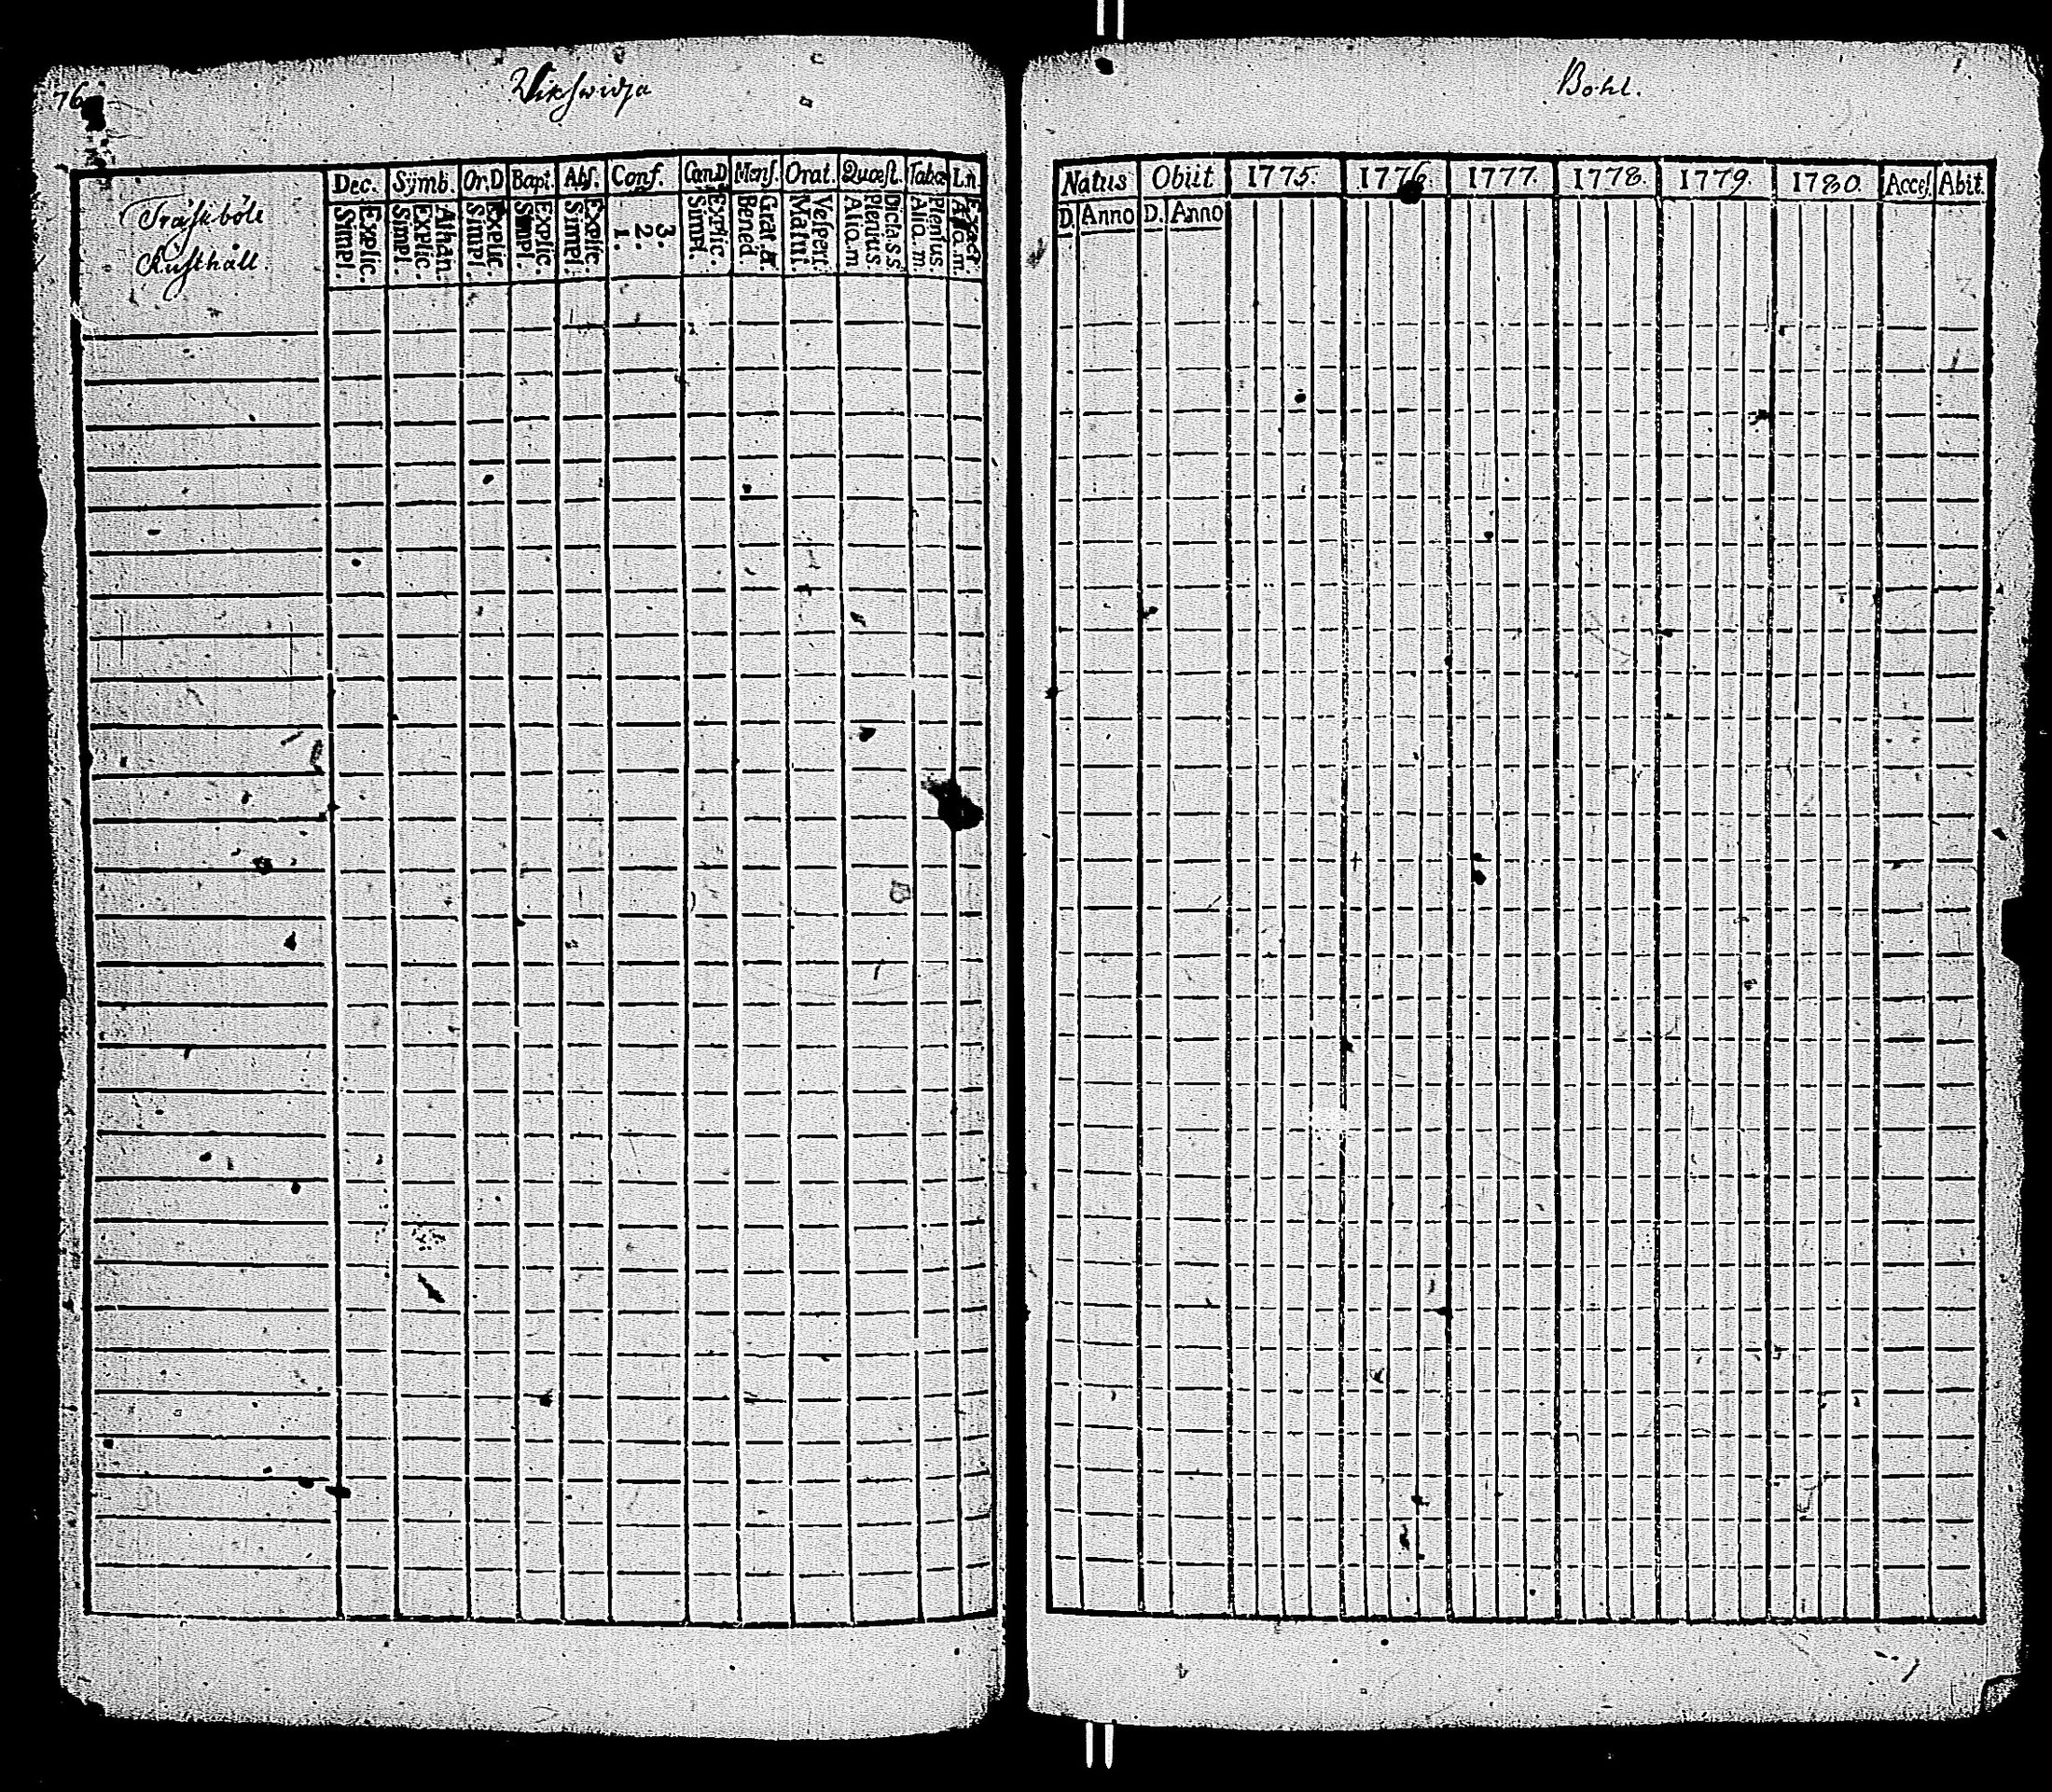 76
Wikswidja
Bohl.
Träskböle
Rusthåll.
Dec. Symb. Or.D Bapt. Abs. Conf. Cœn.D Mens. Orat. Quæst. Tabæ L.n.
Explic. Simpl.
Athan. Explic. Simpl.
Explic. Simpl.
Explic. Simpl.
Explic. Simpl.
3. 2. 1.
Explic. Simpl.
Grat. a. Bened.
Vesperi. Matut.
Dicta. s.s Plenius Alio. m
Plenius. Alia. m.
Exact. Alio. m.
Natus Obiit 1775. 1776. 1777. 1778. 1779. 1780. Acces. Abit.
D. Anno D. Anno